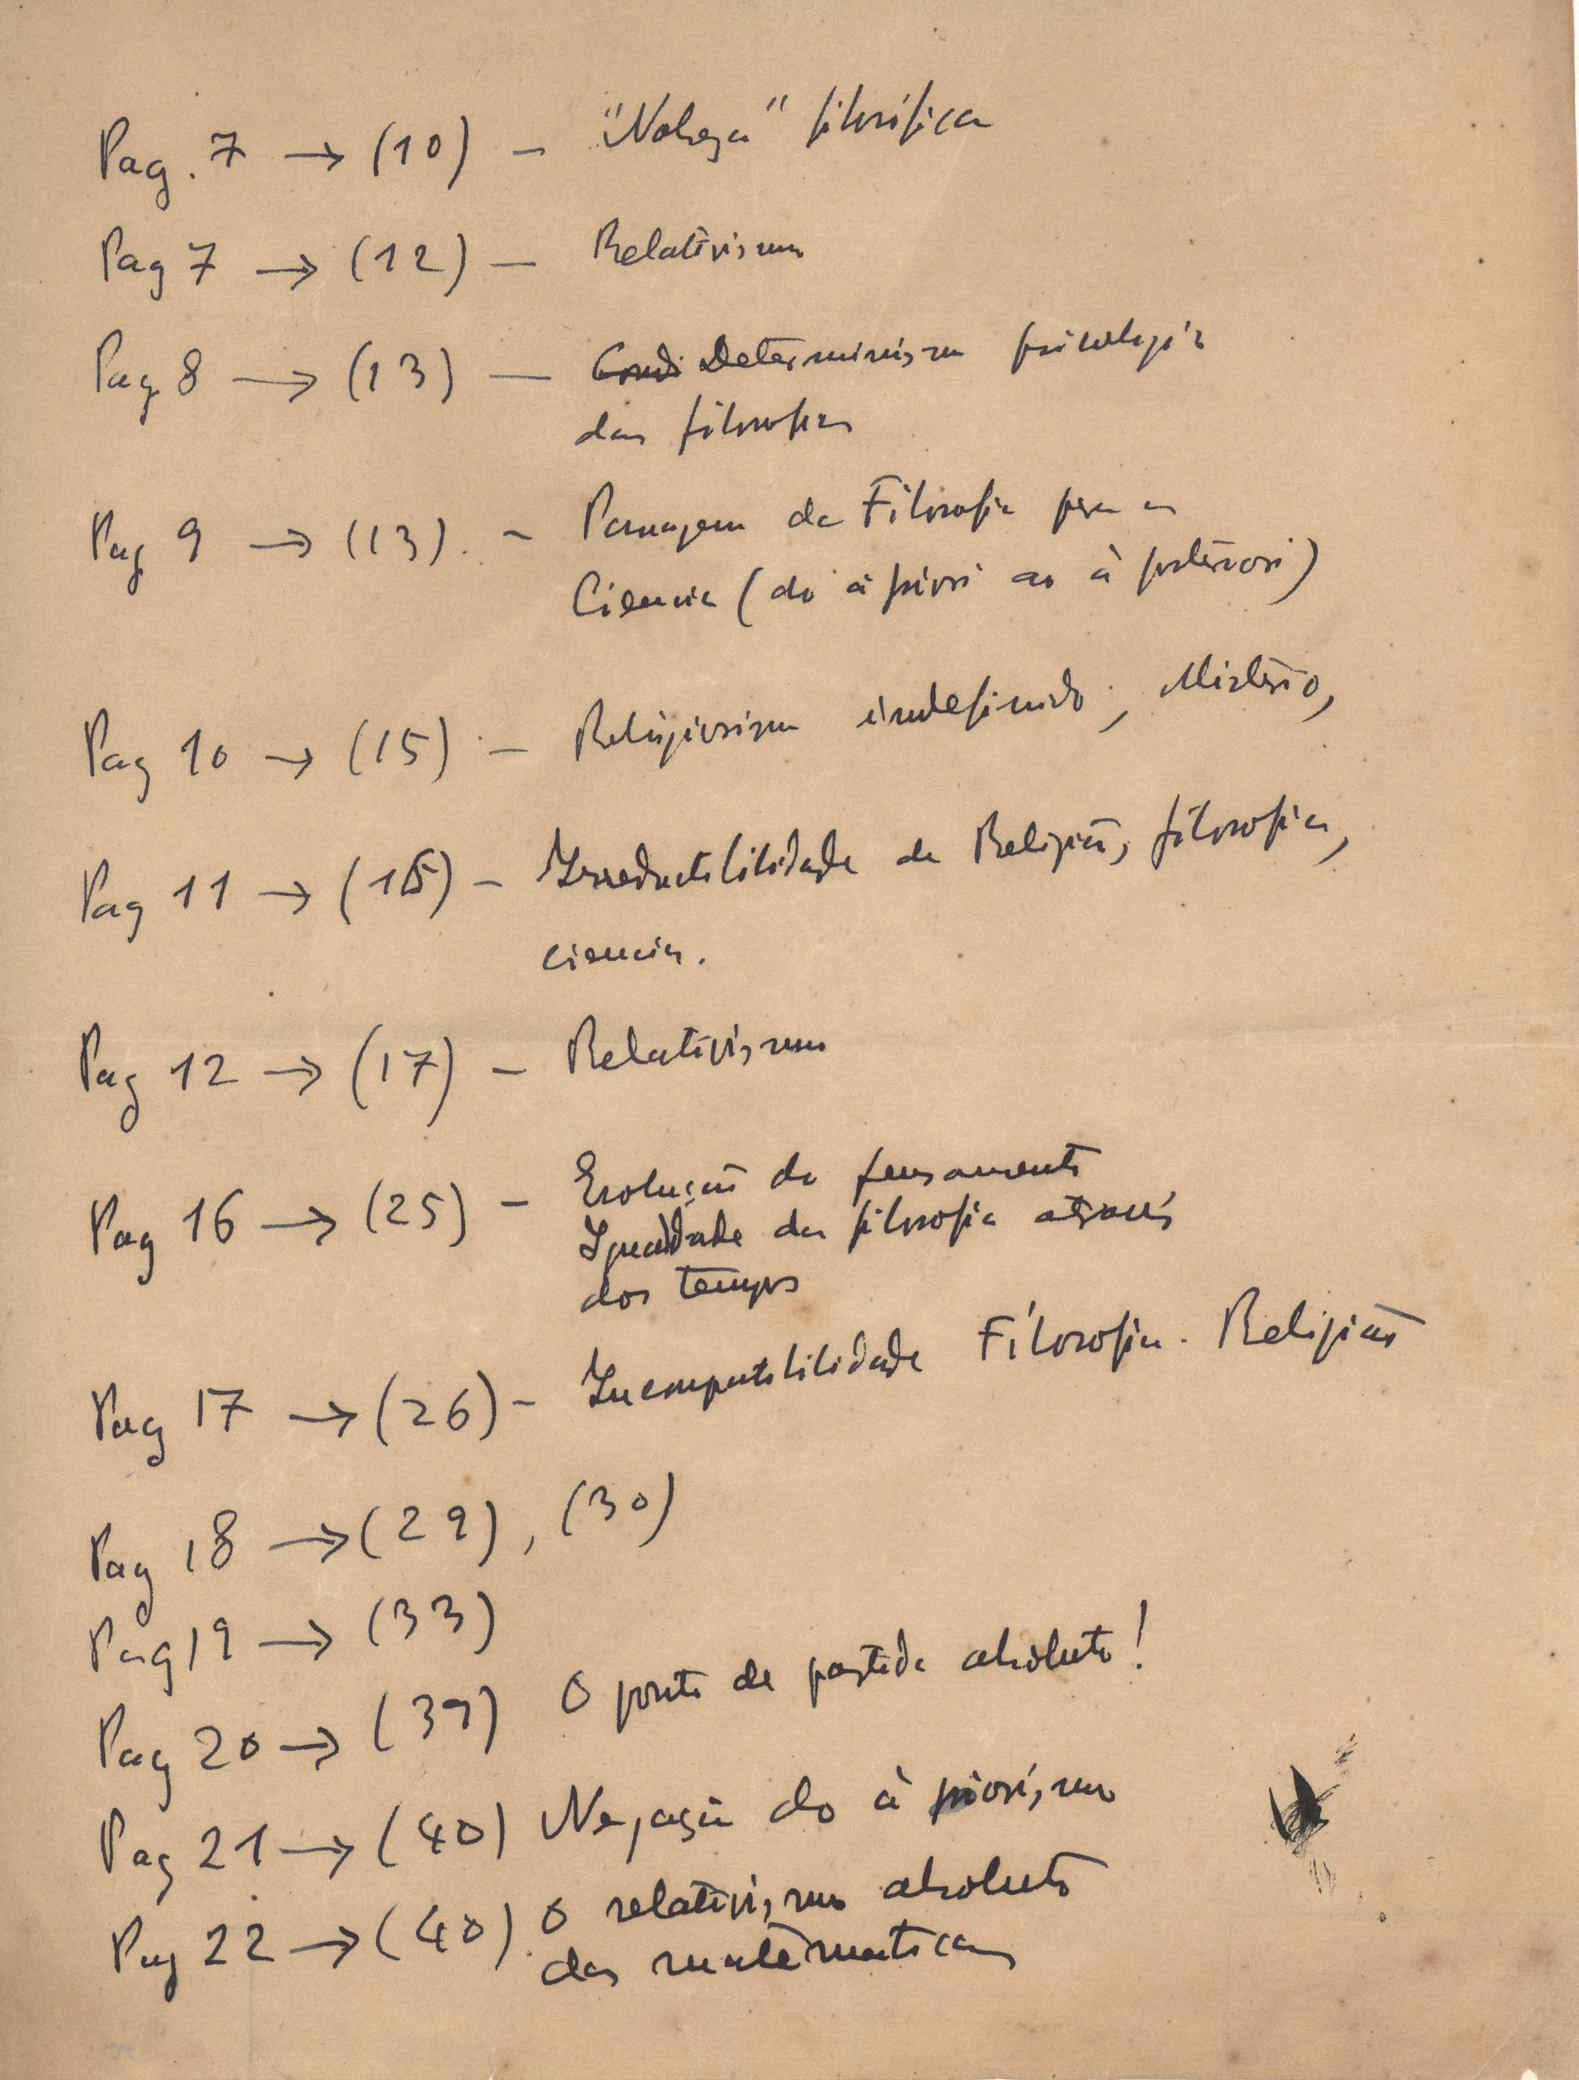 Pag. 7 → (10) - "Nobreza" filosófica
Pag 7 → (12) - Relativismo
Pag 8 → (13) - Condi Determinismo psicologico
das filosofias
Pag 9 → (13). - Passagem da Filosofia para a
Ciencia (do à priori ao à posteriori)
Pag 10 → (15) - Religiosismo indefinido, Mistério,
Pag 11 → (15) - Irreductibilidade da Religião, filosofia,
ciencia.
Pag 12 → (17) - Relativismo
Pag 16 → (25) - Evolução do pensamento
Igualdade da filosofia através
dos tempos
Pag 17 → (26) - Incompatibilidade Filosofia - Religião
Pag 18 → (29), (30)
Pag 19 → (33)
Pag 20 → (39) O ponto de partida absoluto!
Pag 21 → (40) Negação do à priorismo
Pag 22 → (40). O relativismo absoluto
das matématicas